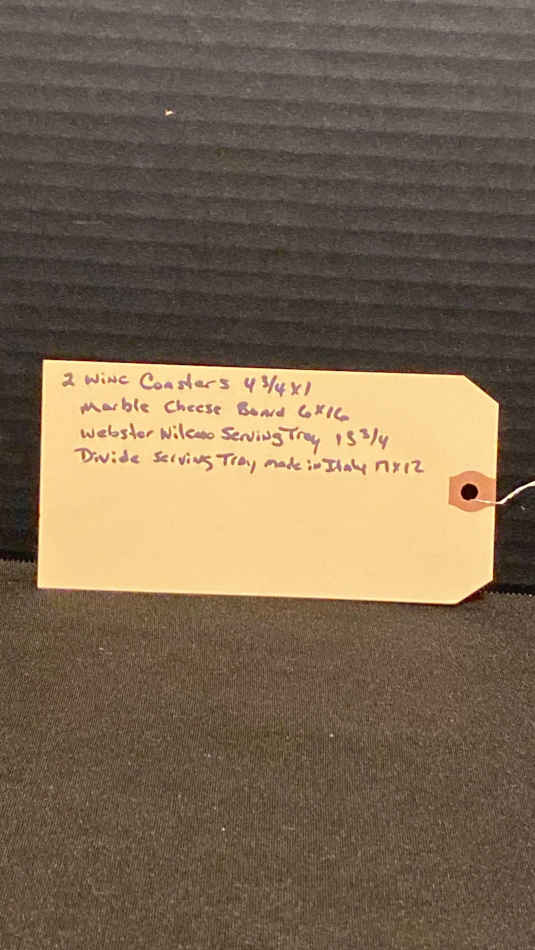 2 Wine Coasters 4 3/4 x 1
Marble Cheese Board 6x16
Webster Wilcox Serving Tray 15 3/4
Divide Serving Tray made in Italy 17x12